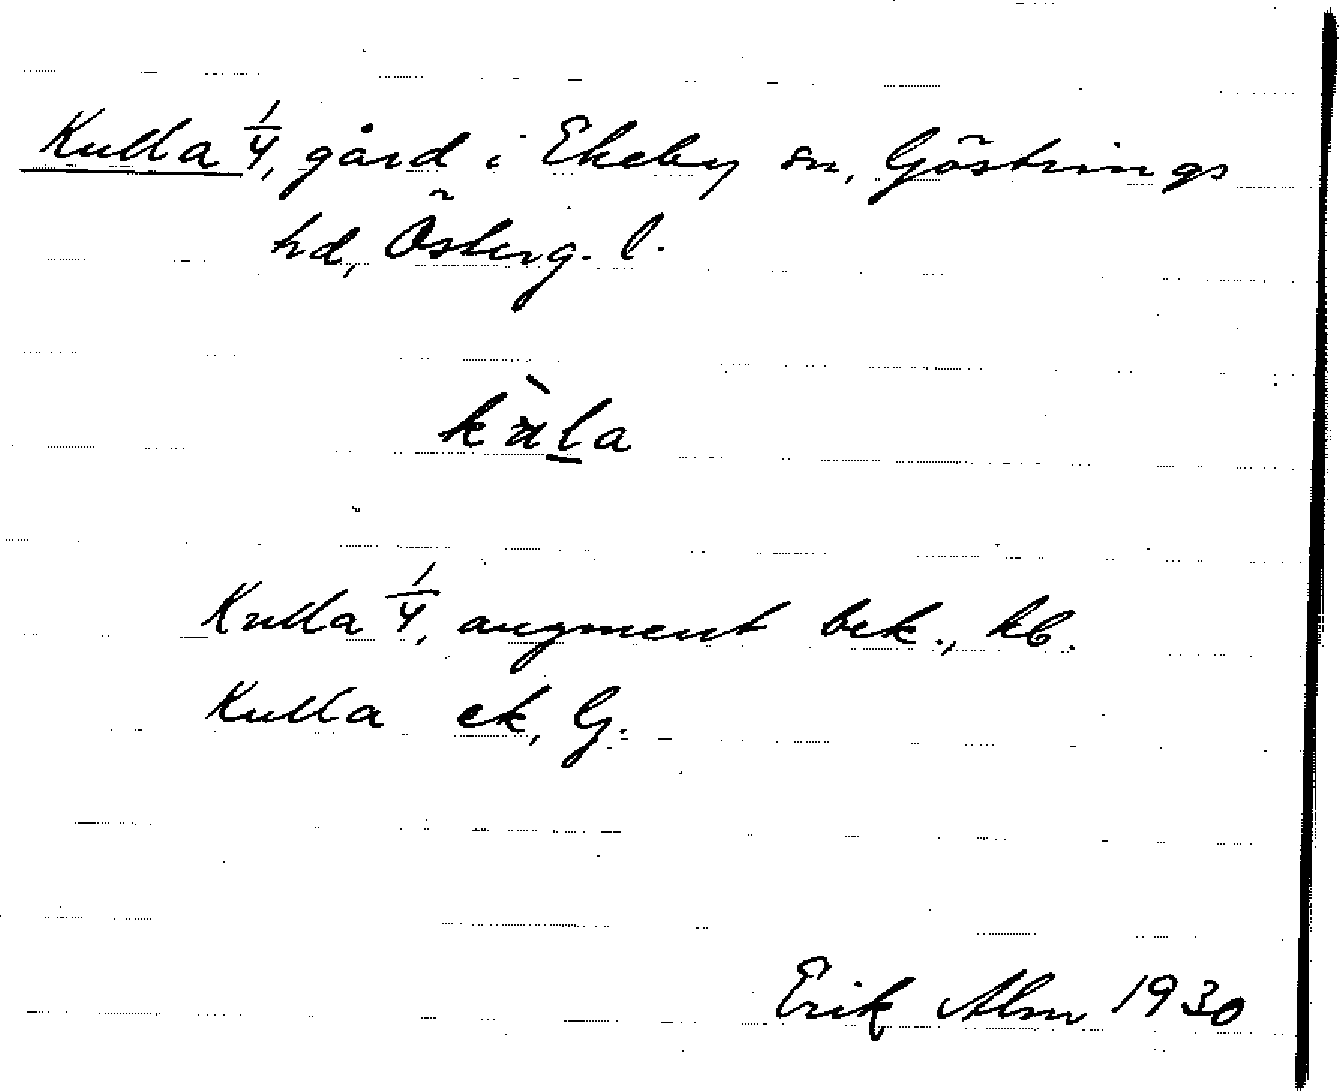 Kulla 1/4, gård i Ekeby sn, Göstrings
hd, Österg. l.
Kulla 1/4, augment bek., kb.
Kulla ek, G.
Erik Alm 1930